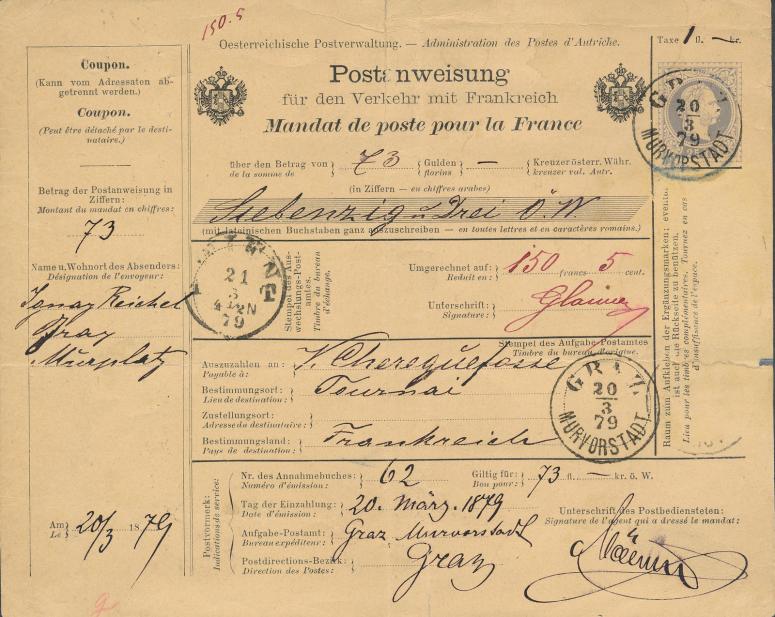 150.5
Oesterreichische Postverwaltung. — Administration des Postes d'Autriche.
Taxe 1 fl. — kr.
Coupon.
(Kann vom Adressaten abgetrennt werden.)
Coupon.
(Peut être détaché par le destinataire.)
Betrag der Postanweisung in Ziffern:
Montant du mandat en chiffres:
73
Name u. Wohnort des Absenders:
Désignation de l'envoyeur:
Ignaz Reichel
Graz
Murplatz
Am
Le 20/3 1879
Postanweisung
für den Verkehr mit Frankreich
Mandat de poste pour la France
über den Betrag von
de la somme de
73
Gulden
florins
—
Kreuzer österr. Währ.
kreuzer val. Autr.
(in Ziffern — en chiffres arabes)
Siebenzig u Drei Ö.W.
(mit lateinischen Buchstaben ganz auszuschreiben — en toutes lettres et en caractères romains.)
21
3
79
Stempel des Auswechslungs-Postamtes.
Timbre du bureau d'échange.
Umgerechnet auf:
Reduit en:
150 francs 5 cent.
Unterschrift:
Signature:
Stempel des Aufgabe-Postamtes
Timbre du bureau d'origine.
Auszuzahlen an:
Payable à:
Bestimmungsort:
Lieu de destination:
Tournai
Zustellungsort:
Adresse du destinataire:
Bestimmungsland:
Pays de destination:
Frankreich
GRAZ
20
3
79
MURVORSTADT
GRAZ
20
3
79
MURVORSTADT
Raum zum Aufkleben der Ergänzungsmarken; eventuell ist auch die Rückseite zu benützen.
Lieu pour les timbres complémentaires. Tournez en cas d'insuffisance de l'espace.
Postvormerk:
Indications de service:
Nr. des Annahmebuches:
Numéro d'émission:
62
Giltig für:
Bon pour:
73 fl. — kr. ö. W.
Tag der Einzahlung:
Date d'émission:
20. März. 1879
Aufgabe-Postamt:
Bureau expéditeur:
Graz Murvorstadt
Postdirections-Bezirk:
Direction des Postes:
Graz
Unterschrift des Postbediensteten:
Signature de l'agent qui a dressé le mandat: